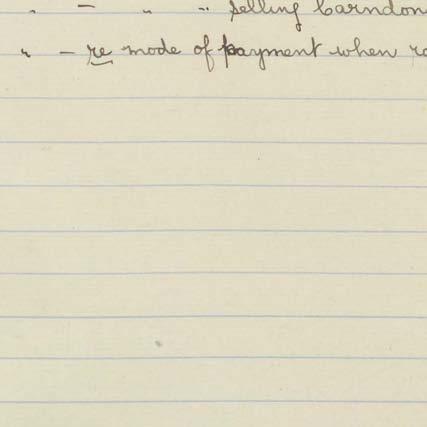 " — " " selling Carndon
" — re mode of payment when